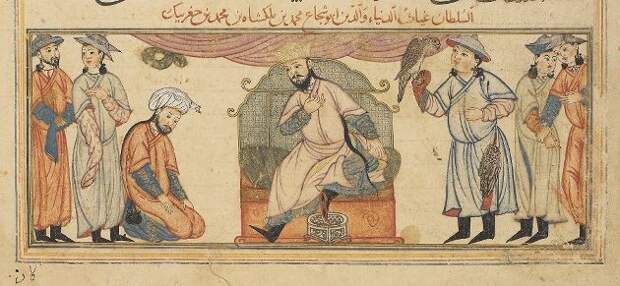 السلطان غياث الدنيا والدين ابو شجاع محمد بن ملكشاه بن محمد بن جغريبك
كان